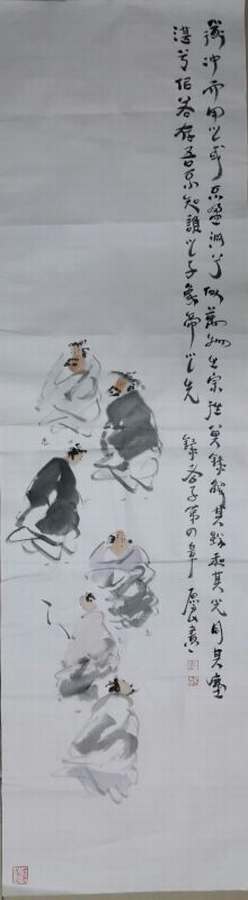 道冲而用之或不盈淵兮似萬物之宗挫其銳解其紛和其光同其塵
湛兮似或存吾不知誰之子象帝之先
錄老子第四章